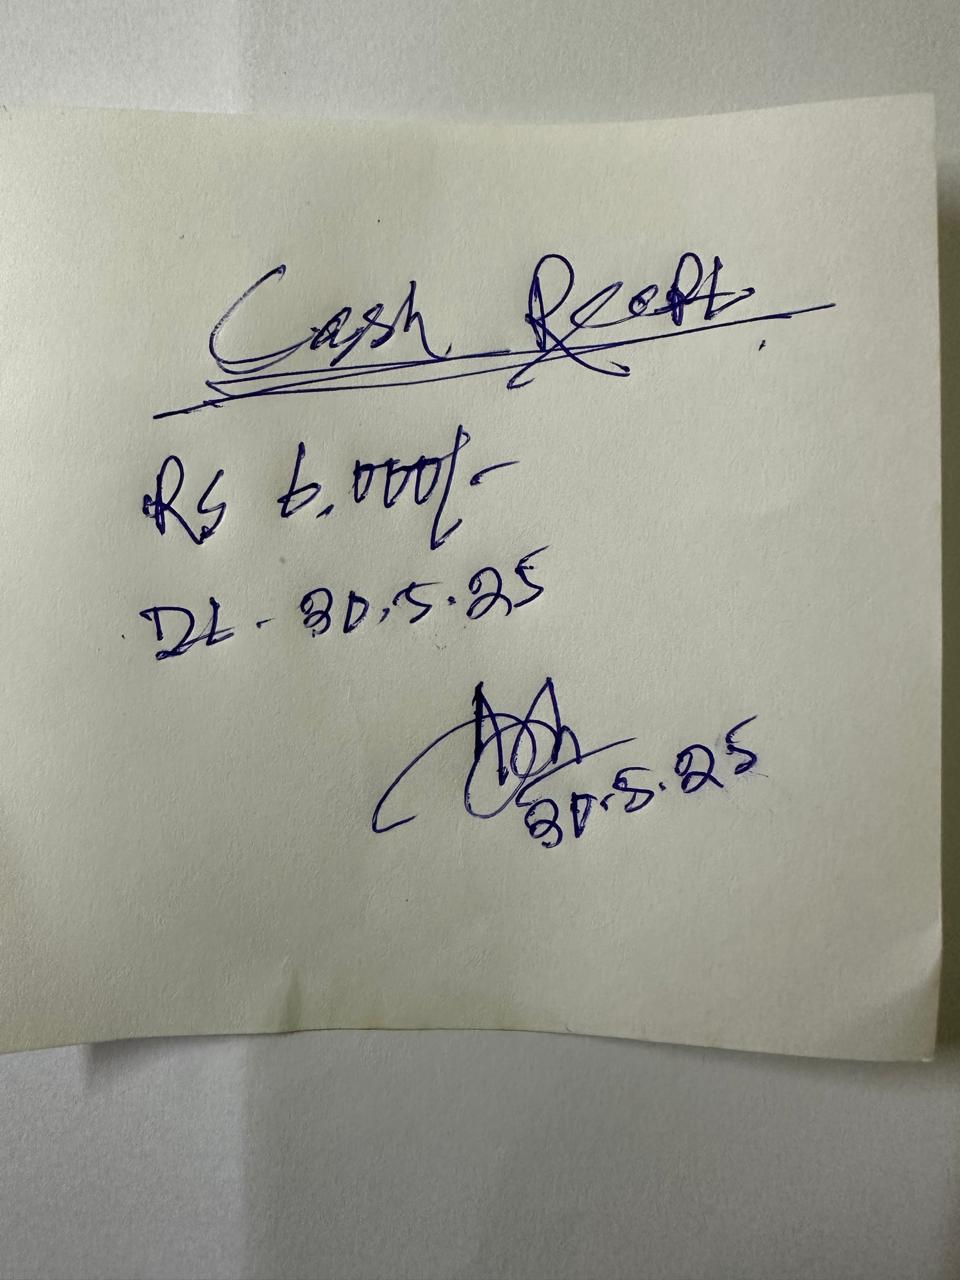 Cash Receipt
RS 6,000/-
Dt - 30.5.25
30.5.25